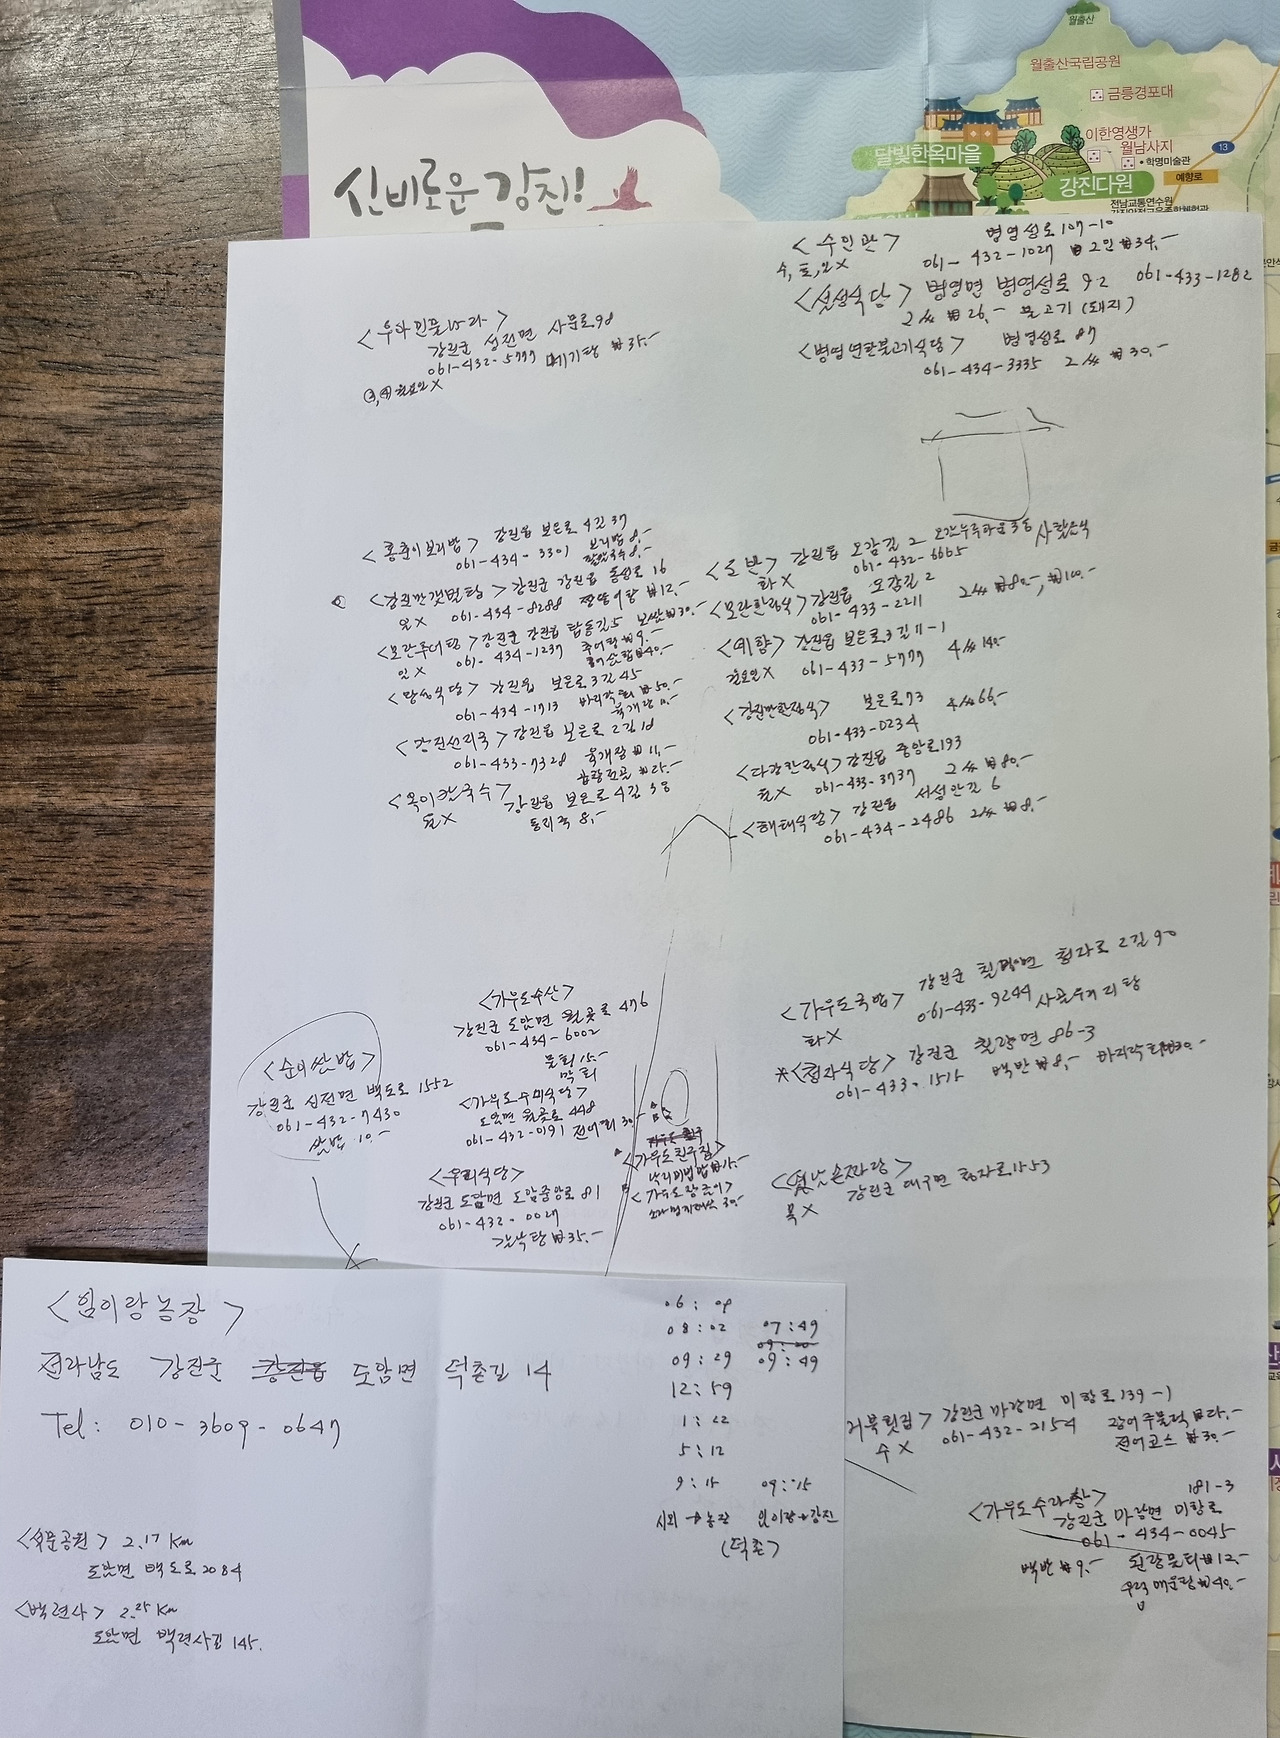 신비로운 강진!
월출산
월출산국립공원
금릉경포대
이한영생가
월남사지
학명미술관
13
예향로
달빛한옥마을
강진다원
전남교통연수원
<수인관> 병영성로 107-10
수, 토, 일 X 061-432-1027 ₩ 2인 ₩34.-
<설성식당> 병영면 병영성로 92 061-433-1282
2人 ₩26.- 불고기(돼지)
<병영연탄불고기식당> 병영성로 87
061-434-3335 2人 ₩30.-
강진군 성전면 사문로 98
061-432-5777 메기탕 ₩35.-
월요일 X
<홍춘이보리밥> 강진읍 보은로 4길 37
061-434-3301 보리밥 8.-
팥칼국수 8.-
<강진만갯벌탕> 강진군 강진읍 동성로 16
일 X 061-434-8288 짱뚱어탕 ₩12.-
<모란추어탕> 강진군 강진읍 탑동길 5 보쌈 ₩30.-
일 X 061-434-1237 추어탕 ₩9.-
강진읍 보은로 3길 45
061-434-1713 바지락회 ₩50.-
육개장 10.-
강진읍 보은로 2길 10
061-433-7328 육개장 ₩11.-
곱창전골
강진읍 보은로 4길
동지죽 8.-
강진읍 오감길 2
화 X 061-432-6665
<모란한정식> 강진읍 오감길 2
061-433-2211 2人 ₩80.-, ₩100.-
<예향> 강진읍 보은로 3길 11-1
월요일 X 061-433-5777 4人 140.-
<강진만한정식> 보은로 73
061-433-0234 4人 66.-
<다강한정식> 강진읍 중앙로 193
061-433-3737 2人 ₩80.-
<해태식당> 강진읍 서성안길 6
061-434-2486 2人 ₩8.-
<가우도수산>
강진군 도암면 월곶로 476
061-434-6002
물회 15.-
막회
<순이쌈밥>
강진군 신전면 백도로 1552
061-432-7430
쌈밥 10.-
<가우도우미식당>
도암면 월곶로 448
061-432-0191 전어회 30.-
<우리식당>
강진군 도암면 도암중앙로 81
061-432-0027
갈낙탕 ₩35.-
<가우도친구집>
낙지비빔밥 ₩15.-
<가우도국밥> 강진군 칠량면 청자로 2길 90
화 X 061-433-9244 사골우거지탕
*<청자식당> 강진군 칠량면 86-3
061-433-1515 백반 ₩8.- 바지락회 ₩30.-
강진군 대구면 청자로 1553
목 X
강진군 마량면 미항로 139-1
수 X 061-432-2154 장어주물럭
전어코스 ₩30.-
<가우도수라상> 181-3
강진군 마량면 미항로
061-434-0045
백반 ₩9.- 된장물회 ₩12.-
우럭매운탕 ₩40.-
<힘이랑농장>
전라남도 강진군 강진읍 도암면 덕촌길 14
Tel: 010-3609-0647
<석문공원> 2.17 Km
도암면 백도로 2084
<백련사> 2.25 Km
도암면 백련사길 145.
06:09
08:02 07:49
09:29 09:49
12:59
1:22
5:12
9:15 09:15
시외→농장
(덕촌)